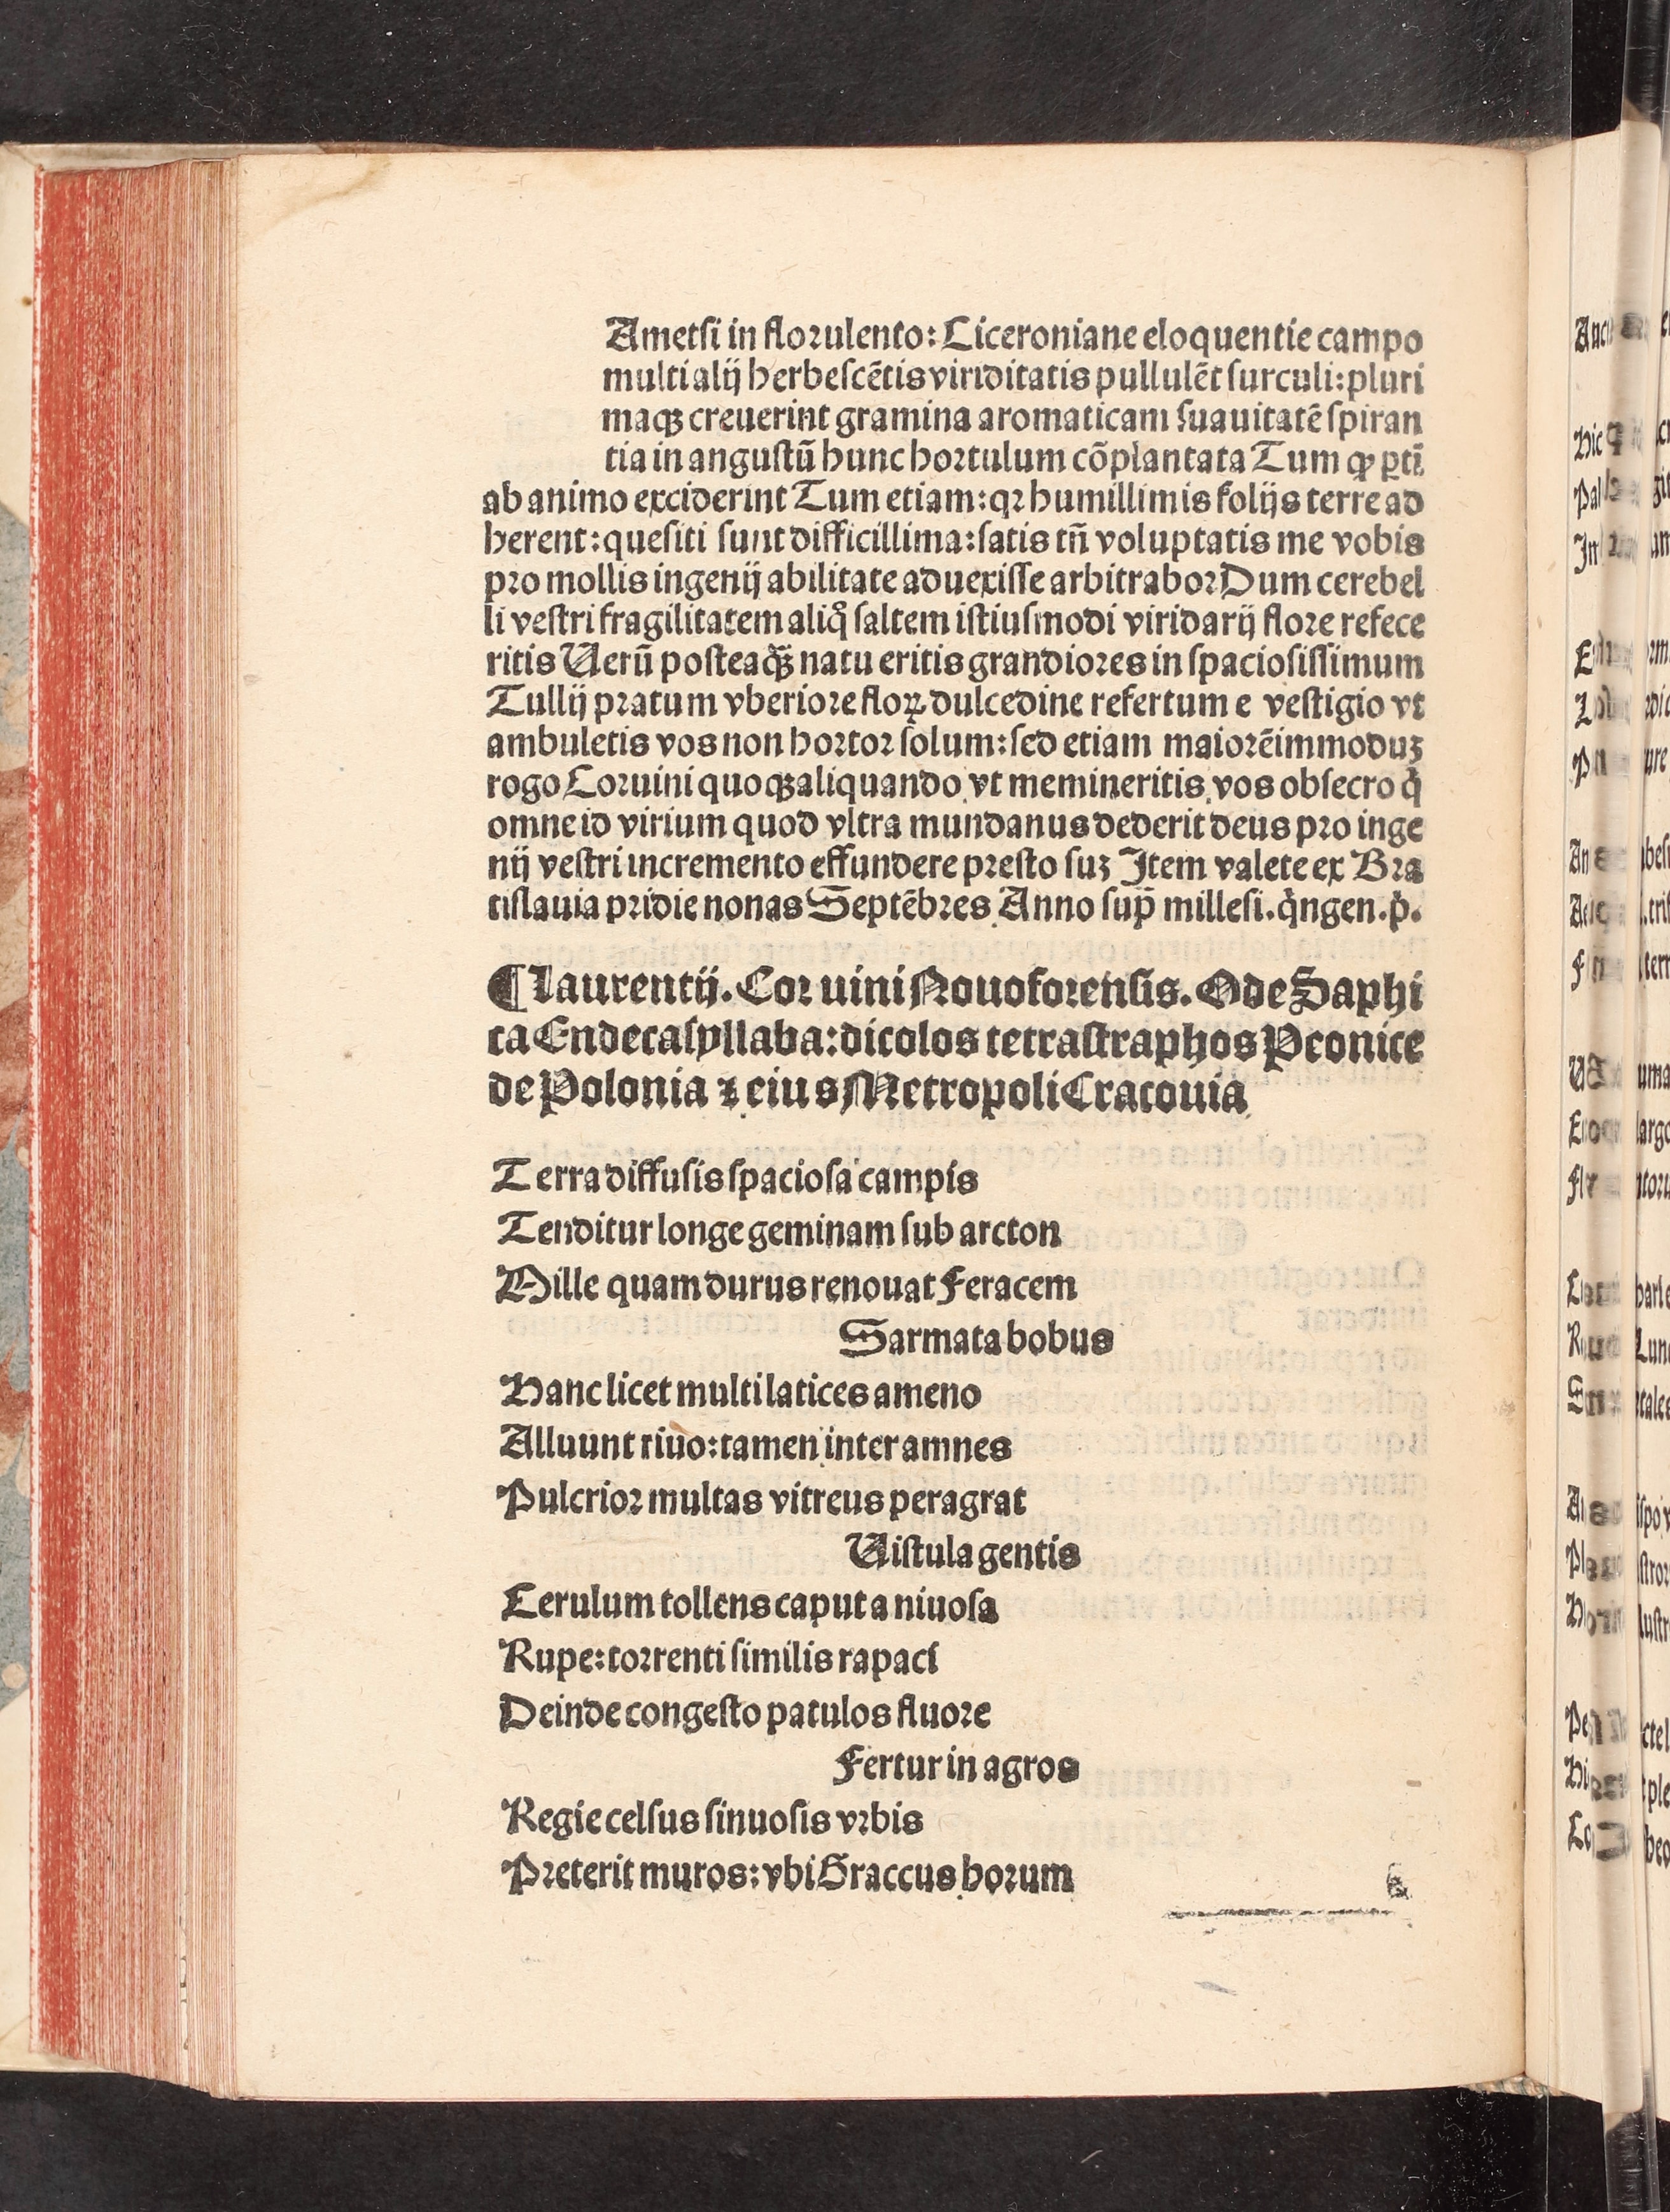 Ametsi in florulento: Ciceroniane eloquentie campo
multi alij herbescētis viriditatis pullulēt surculi: pluri
maqꝫ creuerint gramina aromaticam suauitatē spiran
tia in angustū hunc hortulum cōplantata Tum ꝙ ꝑtī
ab animo exciderint Tum etiam: qꝛ humillimis folijs terre ad
herent: quesiti sunt difficillima: satis tn̄ voluptatis me vobis
pro mollis ingenij abilitate aduexisse arbitrabor Dum cerebel
li vestri fragilitatem aliq̊ saltem istiusmodi viridarij flore refece
ritis Uerū posteaq̄ꝫ natu eritis grandiores in spaciosissimum
Tullij pratum vberiore floꝝ dulcedine refertum e vestigio vt
ambuletis vos non hortor solum: sed etiam maiorēimmoduꝫ
rogo Coruini quoqꝫ aliquando vt memineritis vos obsecro q̇
omne id virium quod vltra mundanus dederit deus pro inge
nij vestri incremento effundere presto suꝫ Item valete ex Bra
tislauia pridie nonas Septēbres Anno sup̄ millesi. q̇ngen. ṗ.
¶ Laurentij. Coruini Nouoforensis. Ode Saphi
ca Endecasyllaba: dicolos tetrastraphos Pconice
de Polonia ⁊ eius Metropoli Cracouia
Terra diffusis spaciosa campis
Tenditur longe geminam sub arcton
Mille quam durus renouat Feracem
Sarmata bobus
Hanc licet multi latices ameno
Alluunt riuo: tamen inter amnes
Pulcrior multas vitreus peragrat
Uistula gentis
Cerulum tollens caput a niuosa
Rupe: torrenti similis rapaci
Deinde congesto patulos fluore
Fertur in agros
Regie celsus sinuosis vrbis
Preterit muros: vbi Graccus horum